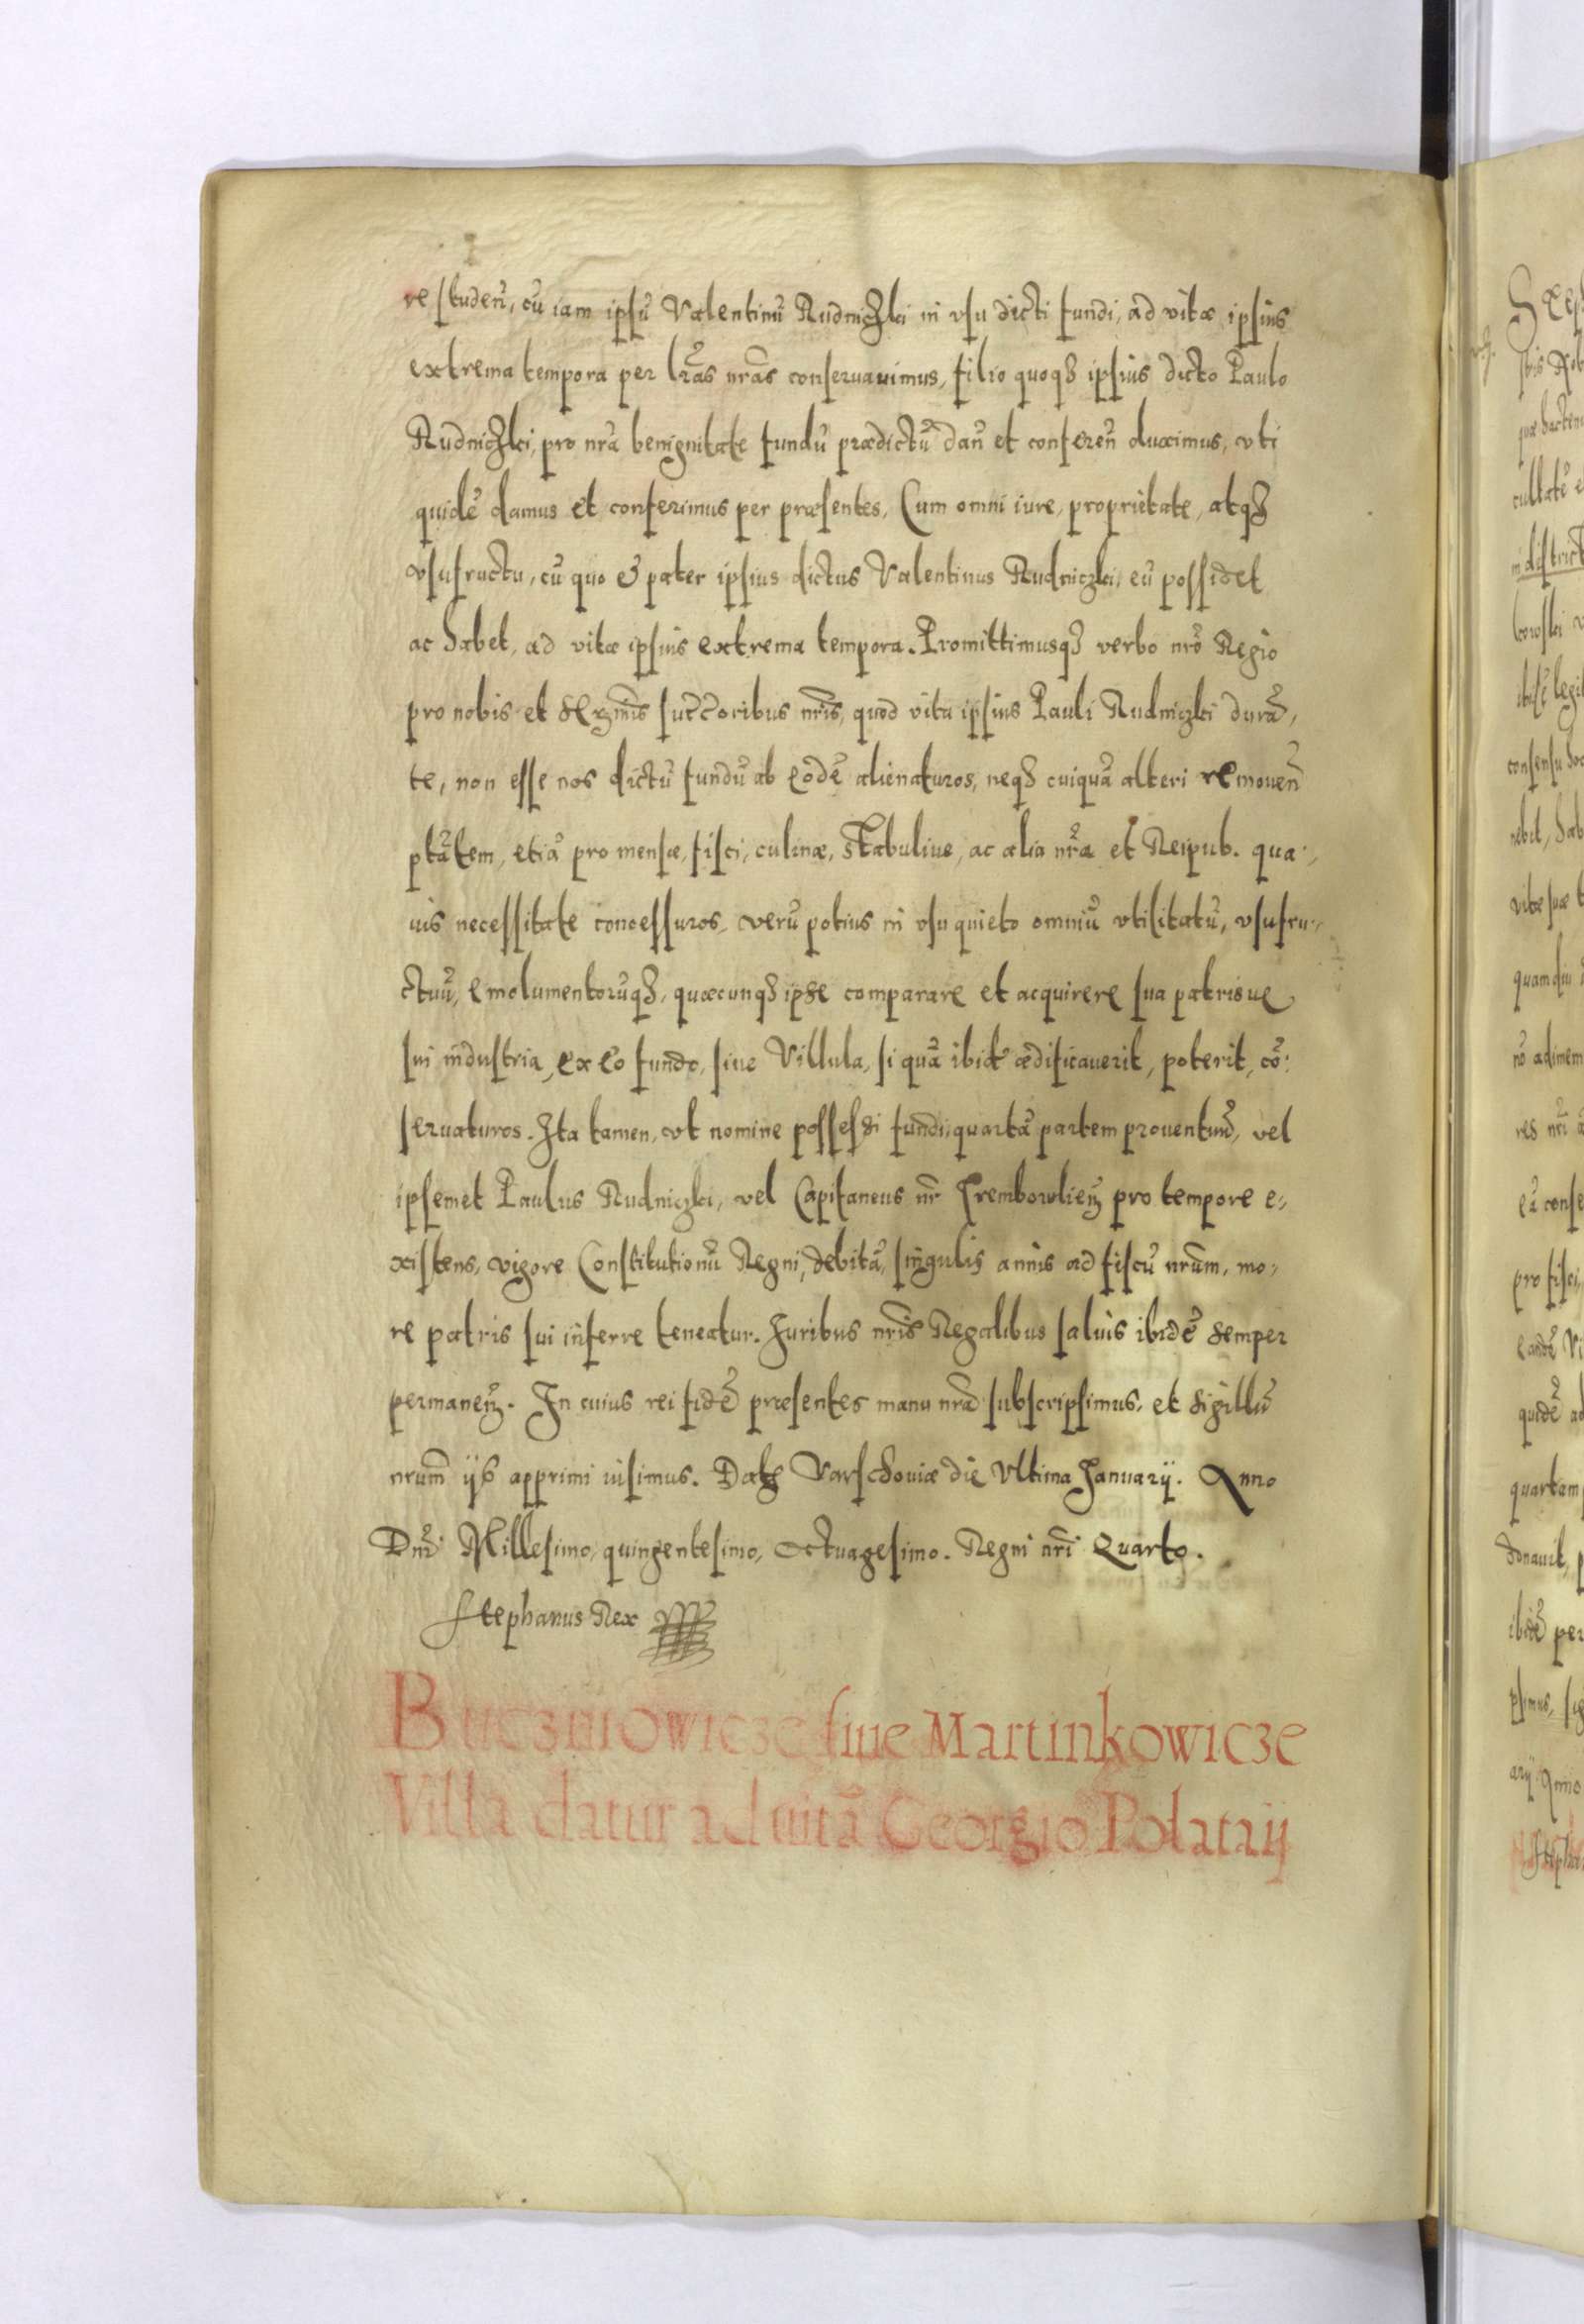 re studeñ, cũ iam ipsũ Valentinũ Rudniczki in vsu dicti fundi, ad vitæ ipsius
extrema tempora per lr̃as nr̃as conseruauimus, filio quoqȝ ipsius dicto Paulo
Rudniczki, pro nr̃a benignitate fundũ prædictũ dañ et conferen̄ duximus, vti
quidẽ damus et conferimus per præsentes, Cum omni iure, proprietate, atqȝ
vsufructu, cũ quo & pater ipsius dictus Valentinus Rudniczki, eũ possidet
ac habet, ad vitæ ipsius extrema tempora. Promittimusqȝ verbo nr̃o Regio
pro nobis et Ser̃mis succ̃oribus nr̃is, quod vita ipsius Pauli Rudniczki durã,
te, non esse nos dictũ fundũ ab eodẽ alienaturos, neqȝ cuiquã alteri remouen̄
ptãtem, etiã pro mensæ, fisci, culinæ, stabuliue, ac alia nr̃a et Reipub. qua,
uis necessitate concessuros, verũ potius in vsu quieto omniũ vtilitatũ, vsufru,
ctuũ, emolumentorũqȝ, quæcunqȝ ipse comparare et acquirere sua patrisue
sui industria, ex eo fundo, siue Villula, si quã ibidẽ ædificauerit, poterit, cõ:
seruaturos. Ita tamen, vt nomine possessi fundi, quartã partem prouentuũ, vel
ipsemet Paulus Rudniczki, vel Capitaneus nr̃ Trembowlien̄ pro tempore e,
xistens, vigore Constitutionũ Regni, debitã, singulis annis ad fiscũ nr̃um, mo,
re patris sui inferre teneatur. Iuribus nr̃is Regalibus saluis ibidẽ semper
permanen̄. In cuius rei fidẽ præsentes manu nr̃a subscripsimus, et sigillũ
nr̃um ijs apprimi iusimus. Datȝ Varschouiæ die Vltima Januarij. Anno
Dñi Millesimo, quingentesimo, Octuagesimo. Regni nr̃i Quarto.
Stephanus Rex
Buczniowicze siue Martinkowicze
Villa datur ad uitã Georgio Polataij